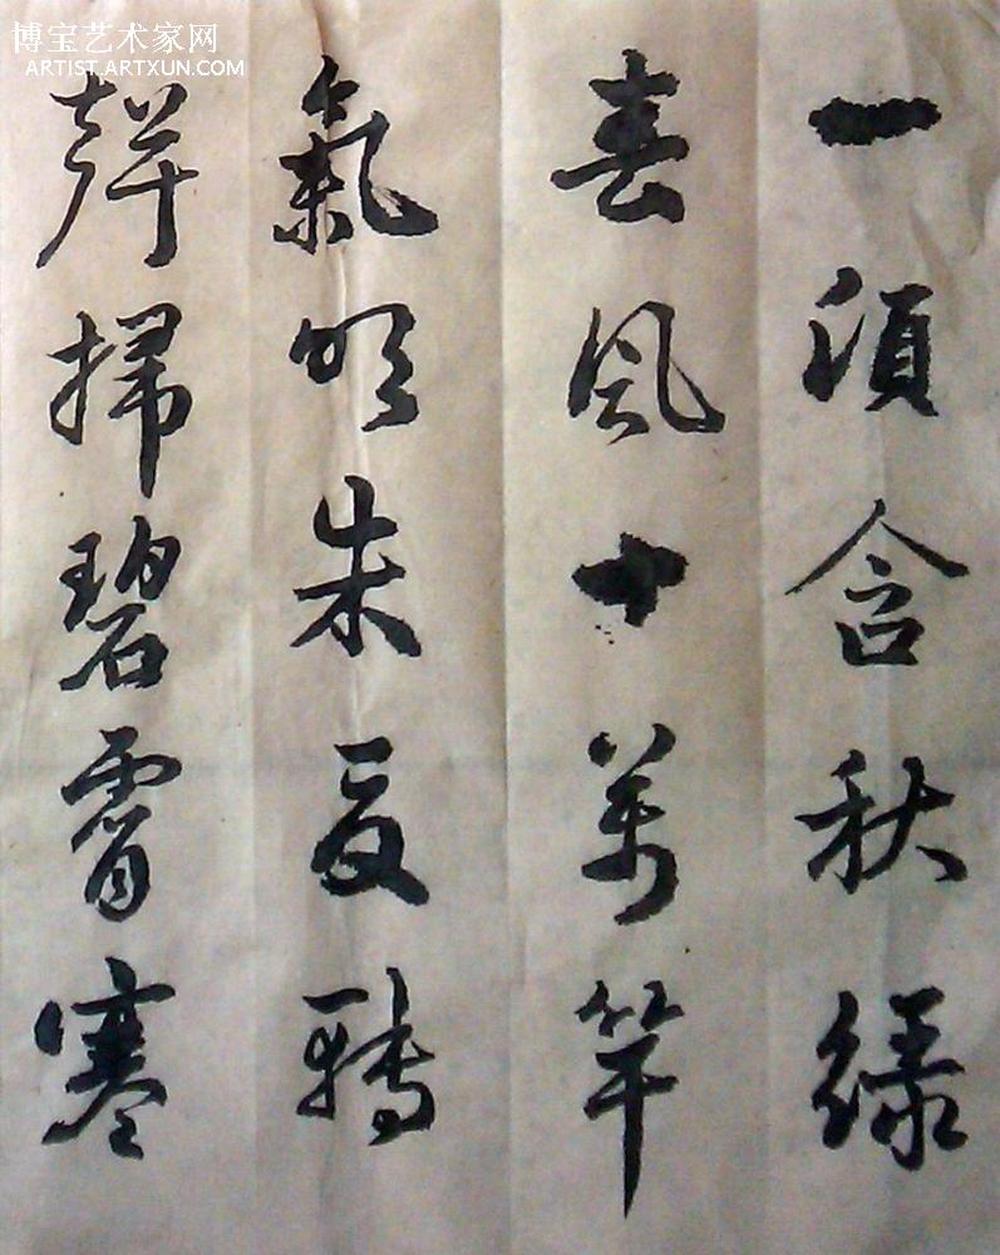 博宝艺术家网
ARTIST.ARTXUN.COM
一須含秋綠
春風十萬竿
氣吹朱夏轉
聲掃碧霄寒